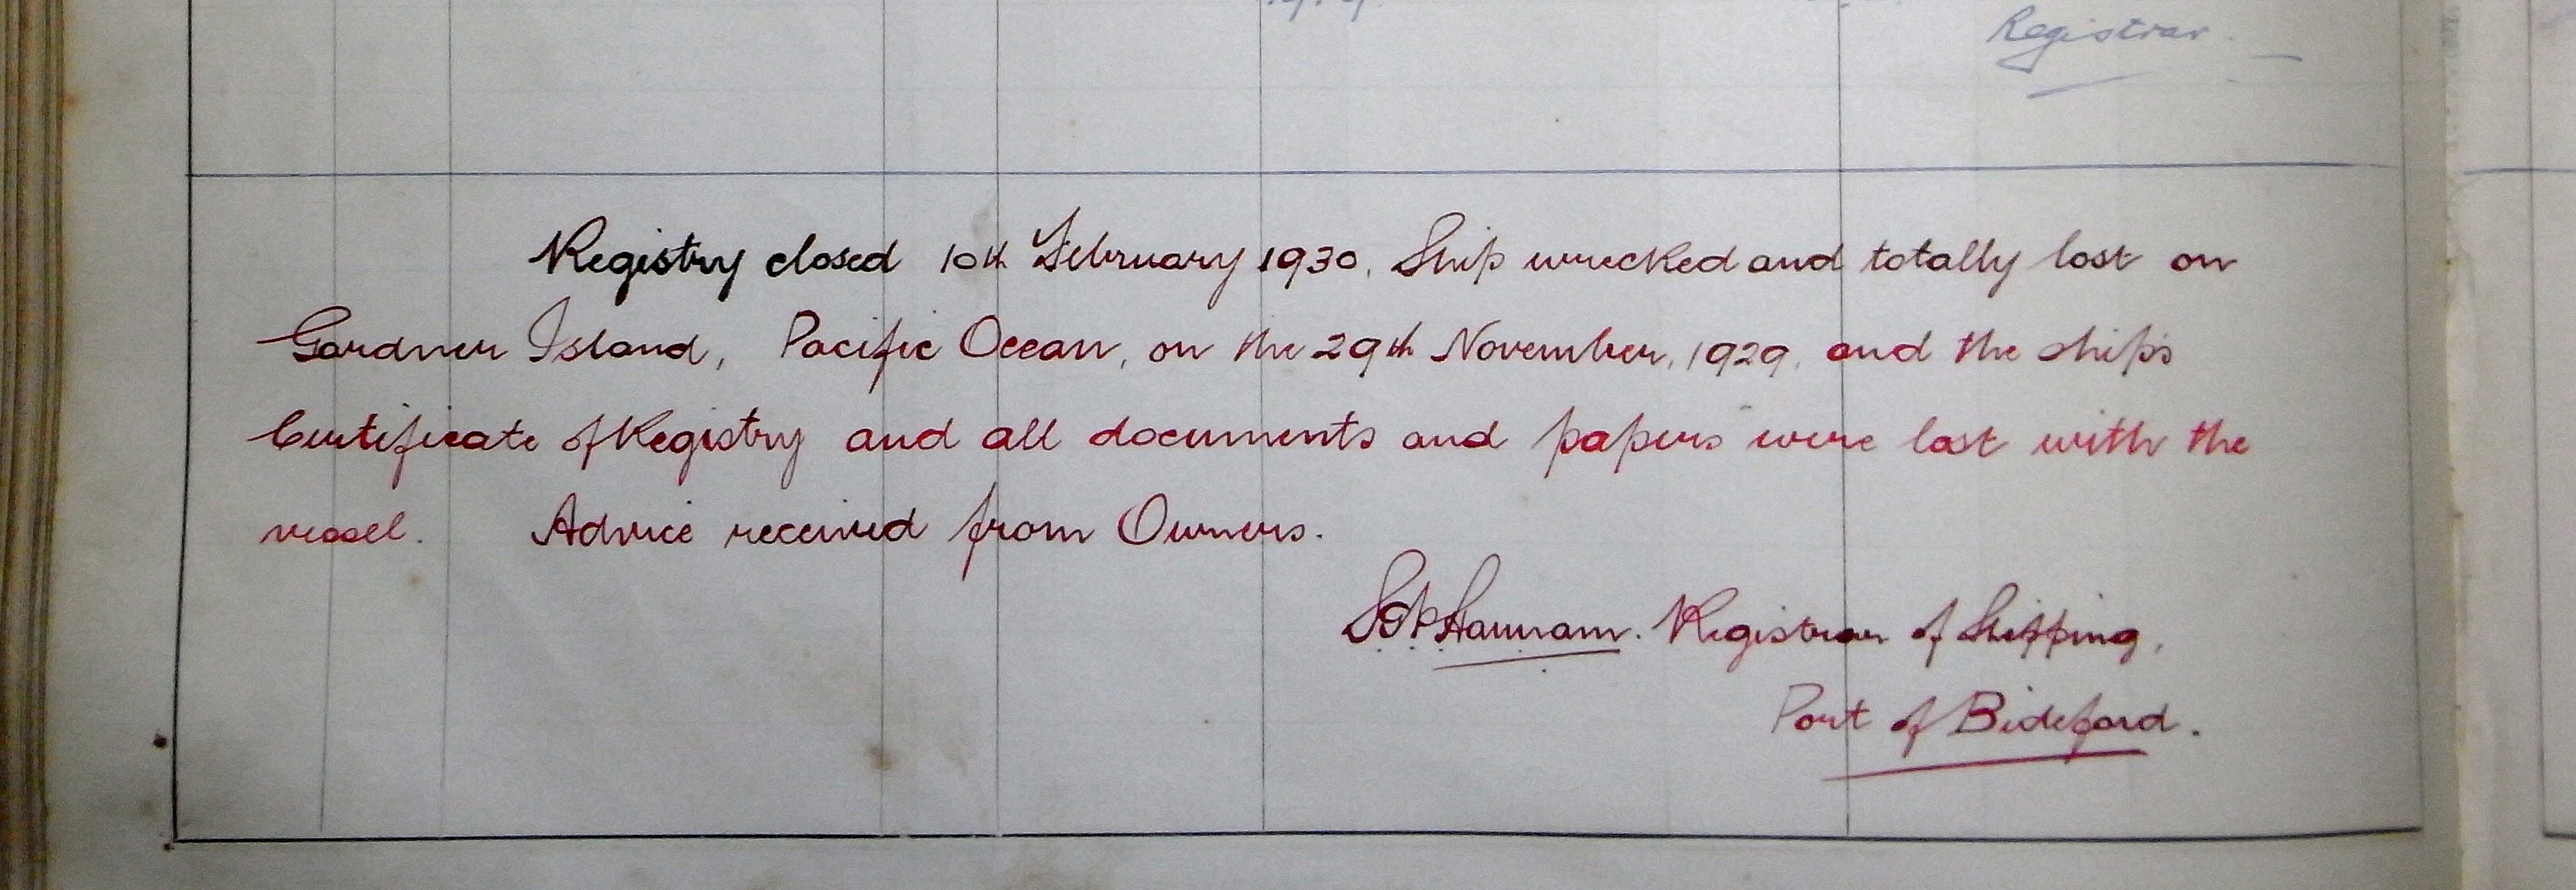 Registrar.
Registry closed 10th February 1930. Ship wrecked and totally lost on
Gardner Island, Pacific Ocean, on the 29th November, 1929. and the ships
Certificate of Registry and all documents and papers were lost with the
vessel. Advice received from Owners.
Hannam. Registrar of Shipping,
Port of Bideford.